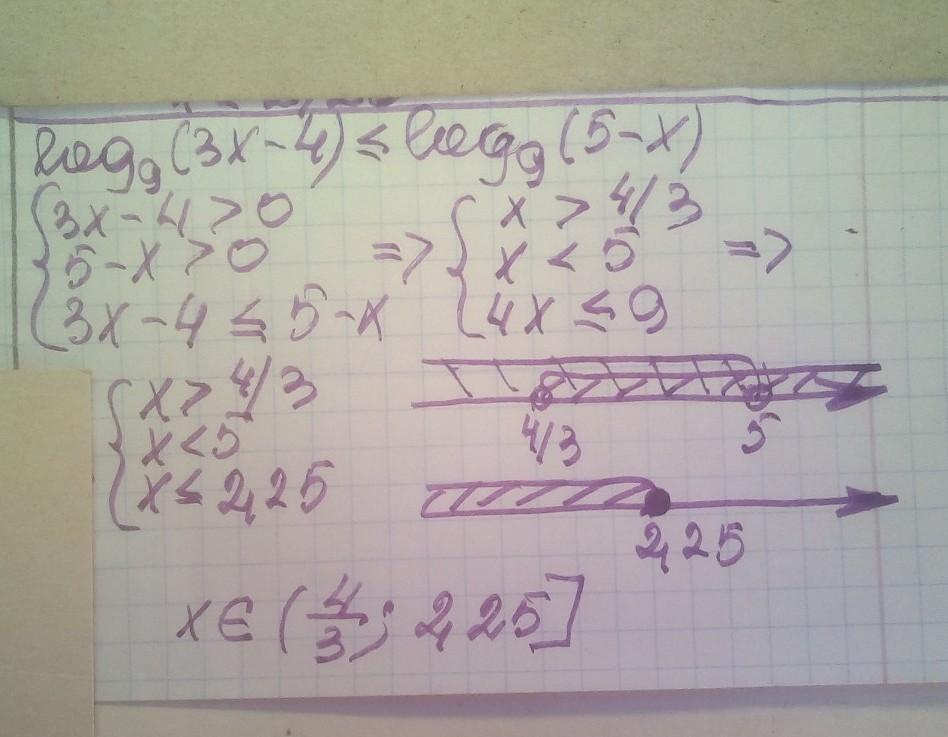 log₉(3x-4) ≤ log₉(5-x)
{3x-4>0 => {x > 4/3 =>
5-x>0 x < 5
3x-4 ≤ 5-x 4x ≤ 9
{x> 4/3
x<5
x≤ 2,25
4/3 5
2,25
x∈(4/3; 2,25]